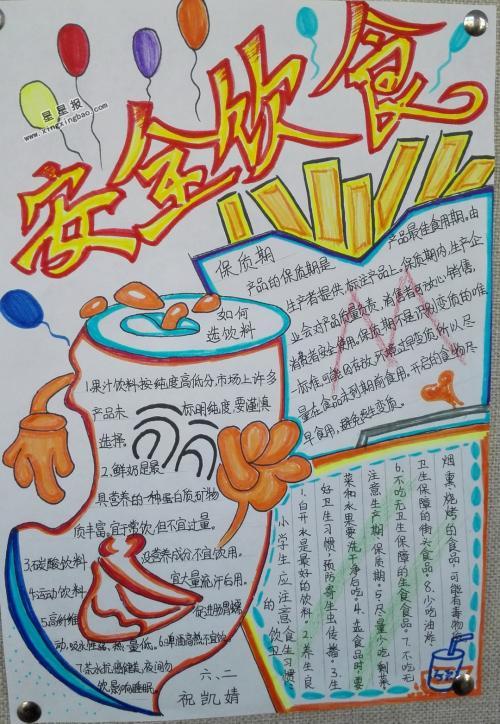 安全饮食
星星报
www.xingxingbao.com
保质期
产品的保质期是
产品最佳食用期。由
生产者提供,标注产品上。保质期内,生产企
业会对产品质量负责,消费者可放心销售,
消费者安全使用。保质期不是识别变质的唯
一标准,可能因存放,环境
变质所以尽
量在食品未到期前食用。开启的食物尽
早食用,避免变质。
如何
选饮料
1.果汁饮料:按纯度高低分,市场上许多
产品未
标明纯度,要谨慎
选择。
2.鲜奶是最
具营养的一种蛋白质矿物
质丰富。宜于常饮,但不宜过量。
3.碳酸饮料
没营养成分不宜饮用。
4.运动饮料
宜大量流汗后用。
5.高纤维
促进肠胃蠕
动,吸水性强,热量低。6.
7.茶
夜间勿
饮易影响睡眠。
六、二
祝凯婧
小学生应注意
的饮
食生习惯:
1.白开水是最好的饮料。2.养生良
好卫生习惯,预防寄生虫传播。3.生
菜和水果要洗干净后吃。4.选食品时要
注意生产期,保质期。5.尽量少吃剩菜
6.不吃无卫生保障的生食食品。7.不吃无
卫生保障的街头食品。8.少吃油炸、
烟熏、烧烤的食品,可能有毒物